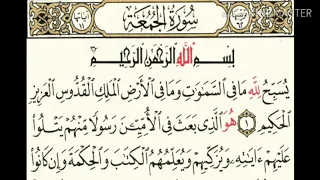 سُورَةُ الْجُمُعَةِ
بِسْمِ اللَّهِ الرَّحْمَٰنِ الرَّحِيمِ
يُسَبِّحُ لِلَّهِ مَا فِي السَّمَاوَاتِ وَمَا فِي الْأَرْضِ الْمَلِكِ الْقُدُّوسِ الْعَزِيزِ
الْحَكِيمِ ١ هُوَ الَّذِي بَعَثَ فِي الْأُمِّيِّينَ رَسُولًا مِنْهُمْ يَتْلُوا
عَلَيْهِمْ آيَاتِهِ وَيُزَكِّيهِمْ وَيُعَلِّمُهُمُ الْكِتَابَ وَالْحِكْمَةَ وَإِنْ كَانُوا